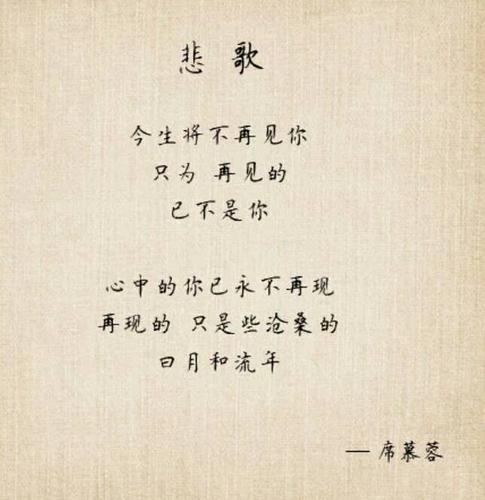 悲歌
今生将不再见你
只为 再见的
已不是你
心中的你已永不再现
再现的 只是些沧桑的
日月和流年
— 席慕蓉